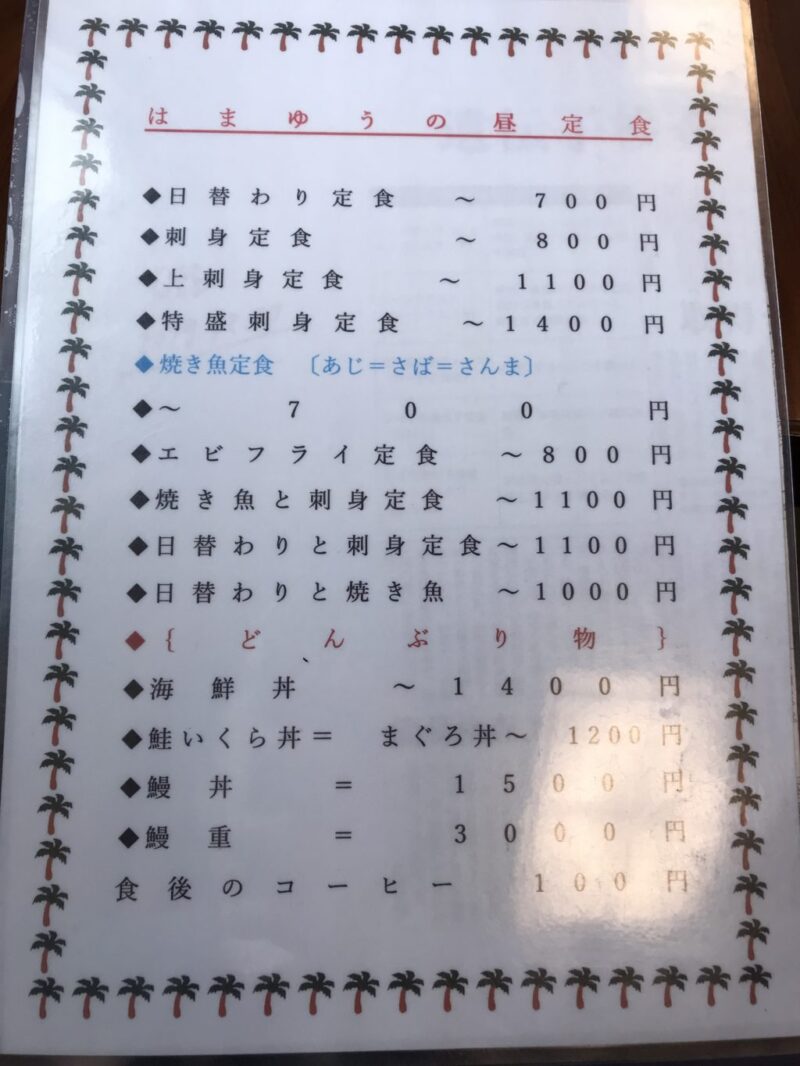 はまゆうの昼定食
◆日替わり定食 ～ 700円
◆刺身定食 ～ 800円
◆上刺身定食 ～ 1100円
◆特盛刺身定食 ～1400円
◆焼き魚定食 〔あじ＝さば＝さんま〕
◆～ 700円
◆エビフライ定食 ～800円
◆焼き魚と刺身定食 ～1100円
◆日替わりと刺身定食～1100円
◆日替わりと焼き魚 ～1000円
◆{どんぶり物}
◆海鮮丼 ～1400円
◆鮭いくら丼＝ まぐろ丼～ 1200円
◆鰻丼 ＝ 1500円
◆鰻重 ＝ 3000円
食後のコーヒー 100円